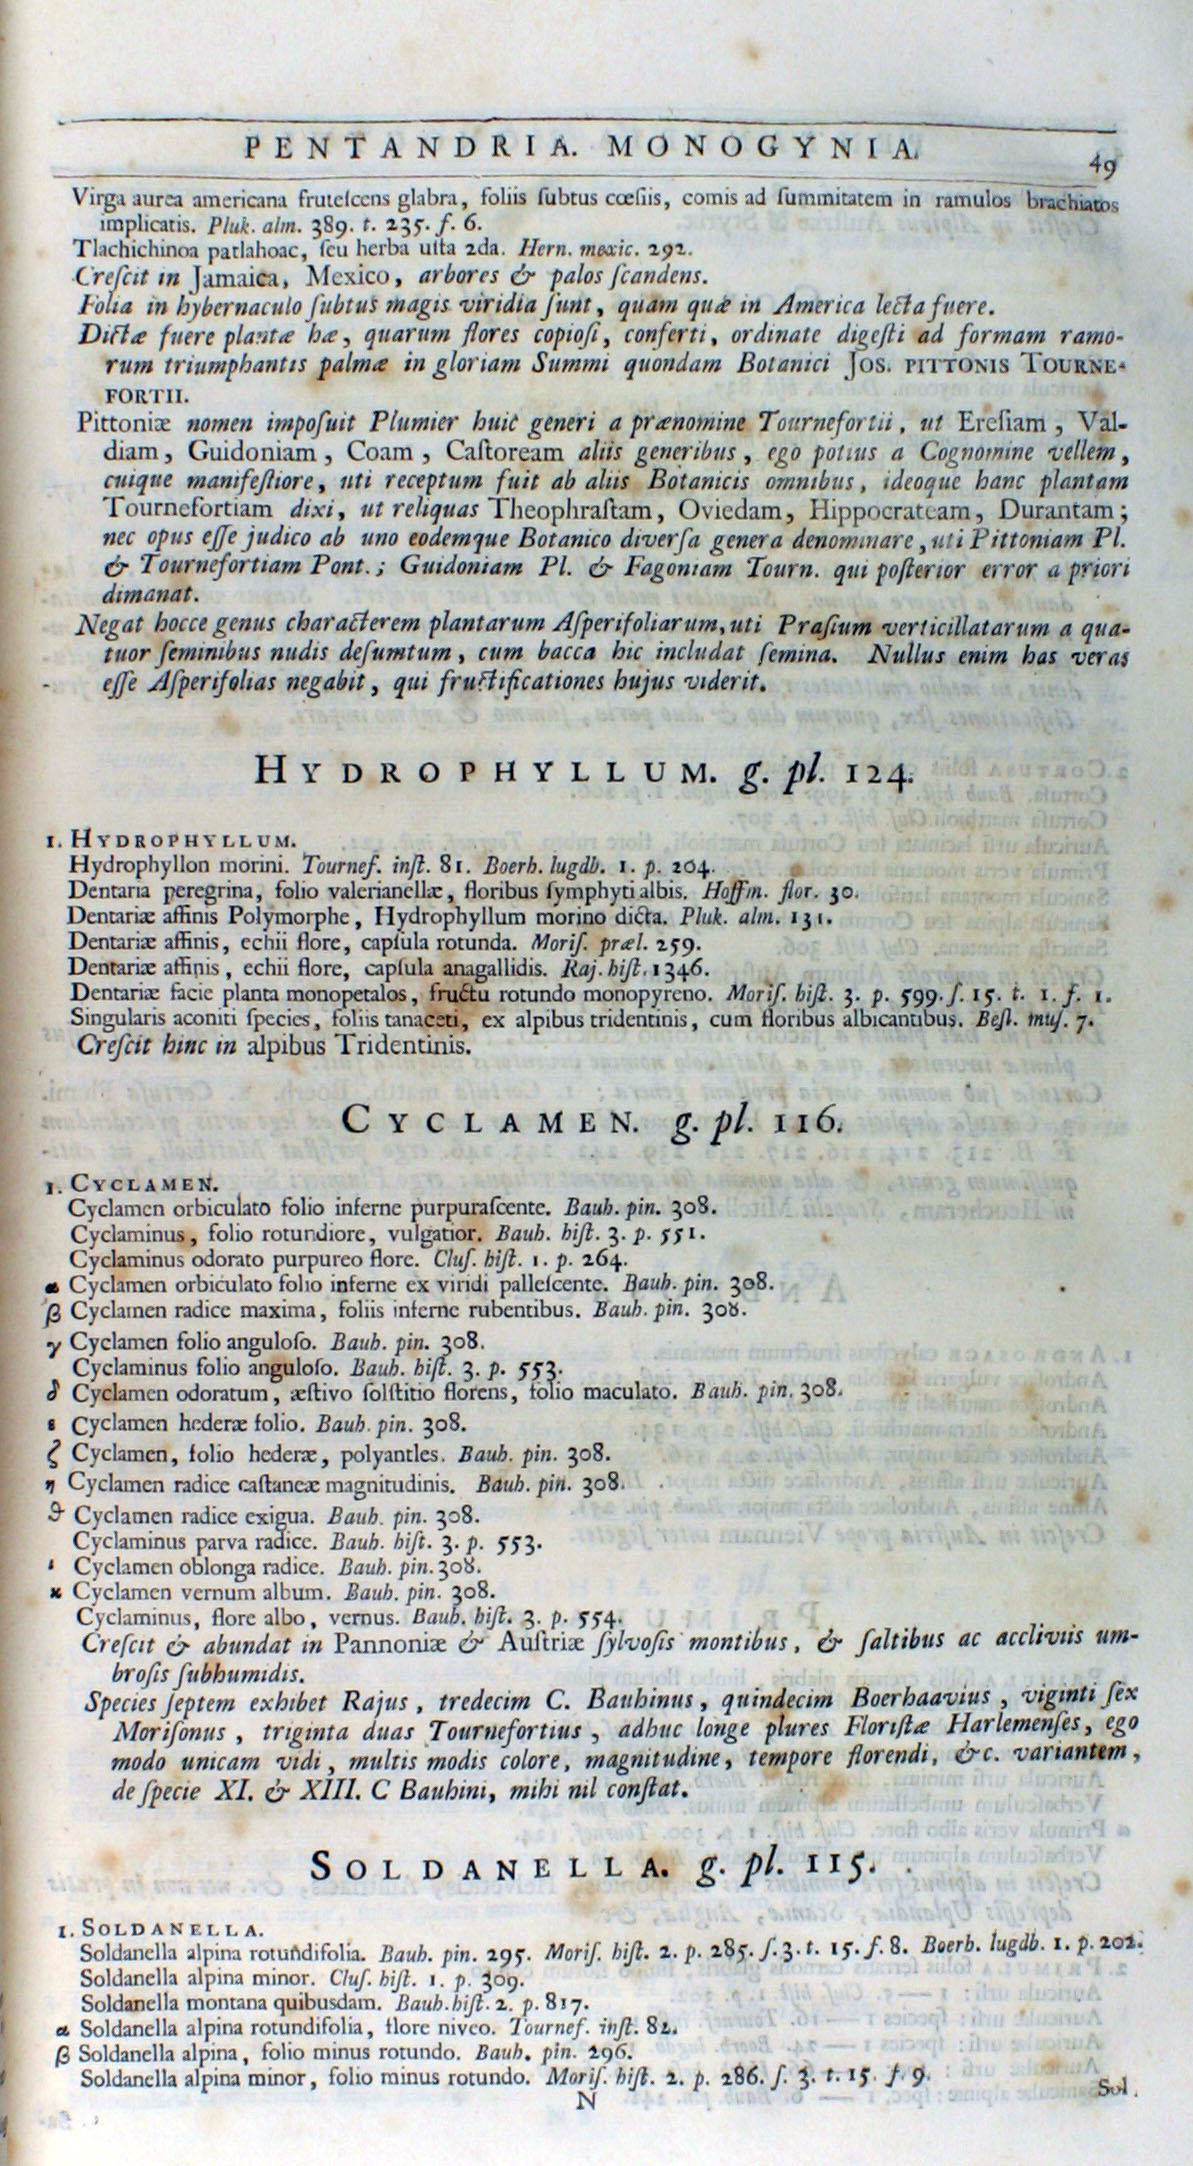 PENTANDRIA. MONOGYNIA. 49
Virga aurea americana frutescens glabra, foliis subtus cœsiis, comis ad summitatem in ramulos brachiatos
implicatis. Pluk. alm. 389. t. 235. f. 6.
Tlachichinoa patlahoac, seu herba usta 2da. Hern. mexic. 292.
Crescit in Jamaica, Mexico, arbores & palos scandens.
Folia in hybernaculo subtus magis viridia sunt, quam quæ in America lecta fuere.
Dictæ fuere plantæ hæ, quarum flores copiosi, conferti, ordinate digesti ad formam ramo-
rum triumphantis palmæ in gloriam Summi quondam Botanici JOS. PITTONIS TOURNE-
FORTII.
Pittoniæ nomen imposuit Plumier huic generi a prænomine Tournefortii, ut Eresiam, Val-
diam, Guidoniam, Coam, Castoream aliis generibus, ego potius a Cognomine vellem,
cuique manifestiore, uti receptum fuit ab aliis Botanicis omnibus, ideoque hanc plantam
Tournefortiam dixi, ut reliquas Theophrastam, Oviedam, Hippocrateam, Durantam;
nec opus esse judico ab uno eodemque Botanico diversa genera denominare, uti Pittoniam Pl.
& Tournefortiam Pont.; Guidoniam Pl. & Fagoniam Tourn. qui posterior error a priori
dimanat.
Negat hocce genus characterem plantarum Asperifoliarum, uti Prasium verticillatarum a qua-
tuor seminibus nudis desumtum, cum bacca hic includat semina. Nullus enim has veras
esse Asperifolias negabit, qui fructificationes hujus viderit.
HYDROPHYLLUM. g. pl. 124.
1. HYDROPHYLLUM.
Hydrophyllon morini. Tournef. inst. 81. Boerh. lugdb. 1. p. 204.
Dentaria peregrina, folio valerianellæ, floribus symphyti albis. Hoffm. flor. 30.
Dentariæ affinis Polymorphe, Hydrophyllum morino dicta. Pluk. alm. 131.
Dentariæ affinis, echii flore, capsula rotunda. Moris. præl. 259.
Dentariæ affinis, echii flore, capsula anagallidis. Raj. hist. 1346.
Dentariæ facie planta monopetalos, fructu rotundo monopyreno. Moris. hist. 3. p. 599. s. 15. t. 1. f. 1.
Singularis aconiti species, foliis tanaceti, ex alpibus tridentinis, cum floribus albicantibus. Besl. mus. 7.
Crescit hinc in alpibus Tridentinis.
CYCLAMEN. g. pl. 116.
1. CYCLAMEN.
Cyclamen orbiculato folio inferne purpurascente. Bauh. pin. 308.
Cyclaminus, folio rotundiore, vulgatior. Bauh. hist. 3. p. 551.
Cyclaminus odorato purpureo flore. Clus. hist. 1. p. 264.
α Cyclamen orbiculato folio inferne ex viridi pallescente. Bauh. pin. 308.
β Cyclamen radice maxima, foliis inferne rubentibus. Bauh. pin. 308.
γ Cyclamen folio anguloso. Bauh. pin. 308.
Cyclaminus folio anguloso. Bauh. hist. 3. p. 553.
δ Cyclamen odoratum, æstivo solstitio florens, folio maculato. Bauh. pin. 308.
ε Cyclamen hederæ folio. Bauh. pin. 308.
ζ Cyclamen, folio hederæ, polyantles. Bauh. pin. 308.
η Cyclamen radice castaneæ magnitudinis. Bauh. pin. 308.
ϑ Cyclamen radice exigua. Bauh. pin. 308.
Cyclaminus parva radice. Bauh. hist. 3. p. 553.
ι Cyclamen oblonga radice. Bauh. pin. 308.
κ Cyclamen vernum album. Bauh. pin. 308.
Cyclaminus, flore albo, vernus. Bauh. hist. 3. p. 554.
Crescit & abundat in Pannoniæ & Austriæ sylvosis montibus, & saltibus ac accliviis um-
brosis subhumidis.
Species septem exhibet Rajus, tredecim C. Bauhinus, quindecim Boerhaavius, viginti sex
Morisonus, triginta duas Tournefortius, adhuc longe plures Floristæ Harlemenses, ego
modo unicam vidi, multis modis colore, magnitudine, tempore florendi, &c. variantem,
de specie XI. & XIII. C Bauhini, mihi nil constat.
SOLDANELLA. g. pl. 115.
1. SOLDANELLA.
Soldanella alpina rotundifolia. Bauh. pin. 295. Moris. hist. 2. p. 285. s. 3. t. 15. f. 8. Boerh. lugdb. 1. p. 202.
Soldanella alpina minor. Clus. hist. 1. p. 309.
Soldanella montana quibusdam. Bauh. hist. 2. p. 817.
α Soldanella alpina rotundifolia, flore niveo. Tournef. inst. 82.
β Soldanella alpina, folio minus rotundo. Bauh. pin. 296.
Soldanella alpina minor, folio minus rotundo. Moris. hist. 2. p. 286. s. 3. t. 15. f. 9.
N Sol.